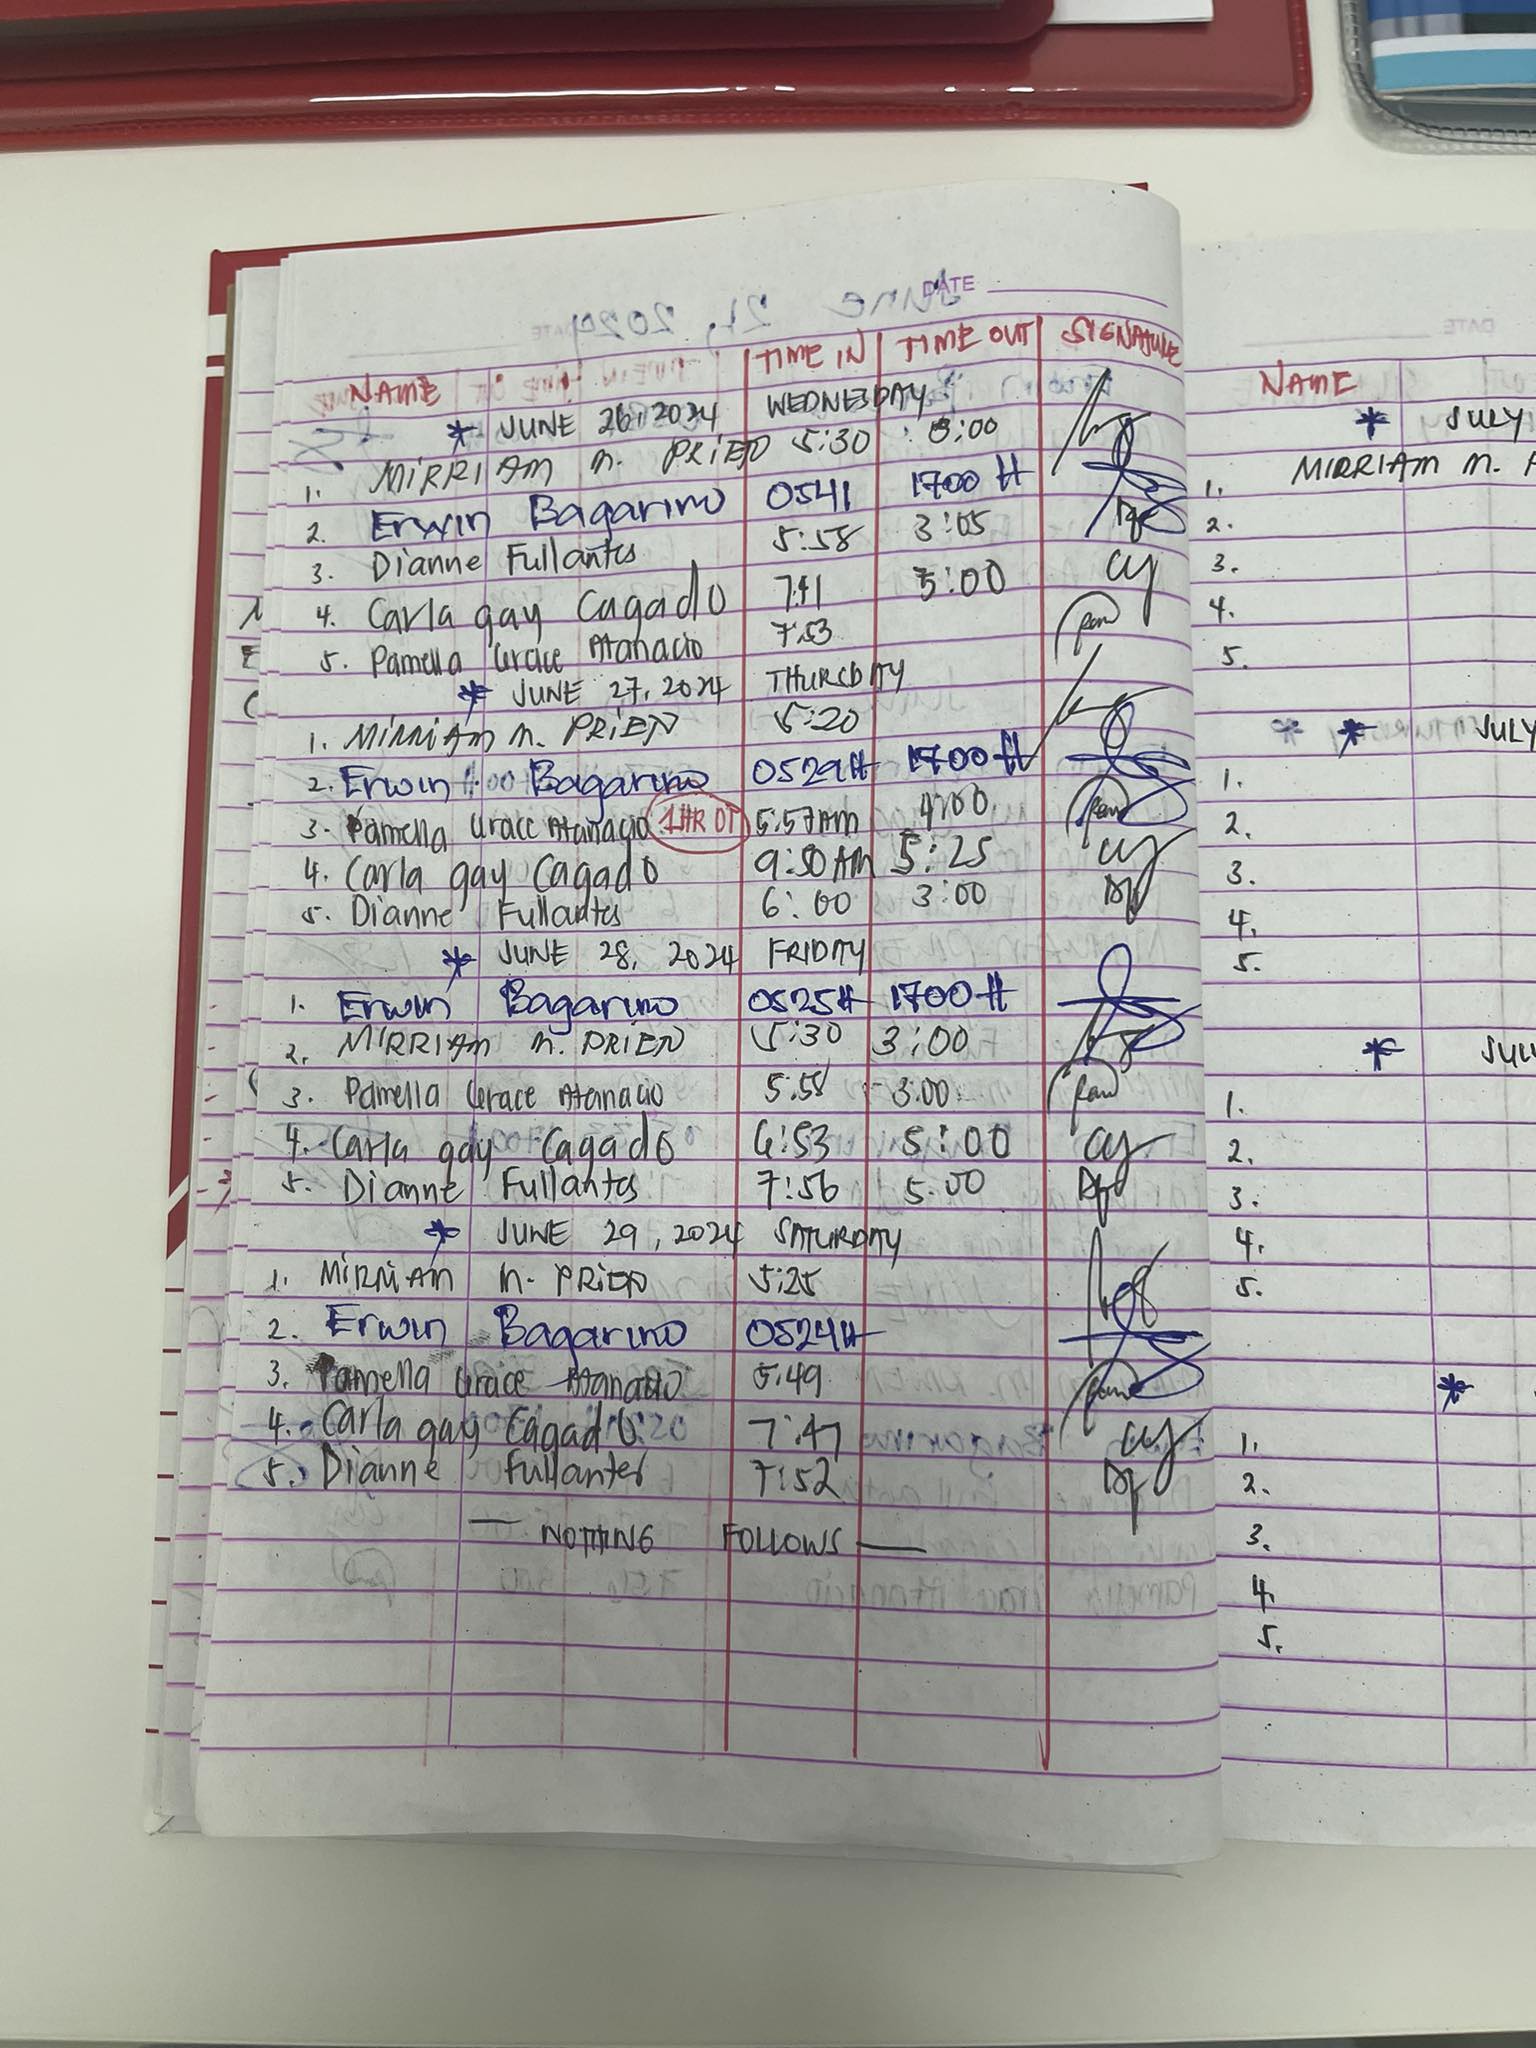 DATE
NAME TIME IN TIME OUT SIGNATURE
* JUNE 26, 2024 WEDNESDAY
1. MIRRIAM M. PRIEN 5:30 3:00
2. Erwin Bagarino 0541 1700H
3. Dianne Fullantes 5:58 3:05
4. Carla gay Cagado 7:41 5:00
5. Pamella Grace Atanacio 7:53
* JUNE 27, 2024 THURSDAY
1. MIRRIAM M. PRIEN 5:20
2. Erwin Bagarino 0529H 1700H
3. Pamella Grace Atanacio 1HR OT 5:57AM 4:00
4. Carla gay Cagado 9:50 AM 5:25
5. Dianne Fullantes 6:00 3:00
* JUNE 28, 2024 FRIDAY
1. Erwin Bagarino 0525H 1700H
2. MIRRIAM M. PRIEN 5:30 3:00
3. Pamella Grace Atanacio 5:55 3:00
4. Carla gay Cagado 6:53 5:00
5. Dianne Fullantes 7:56 5:00
* JUNE 29, 2024 SATURDAY
1. MIRRIAM M. PRIEN 5:25
2. Erwin Bagarino 0524H
3. Pamella Grace Atanacio 5:49
4. Carla gay Cagado 7:47
5. Dianne Fullantes 7:52
— NOTHING FOLLOWS —
NAME
* JULY
1. MIRRIAM M.
2.
3.
4.
5.
* * JULY
1.
2.
3.
4.
5.
* JULY
1.
2.
3.
4.
5.
*
1.
2.
3.
4.
5.